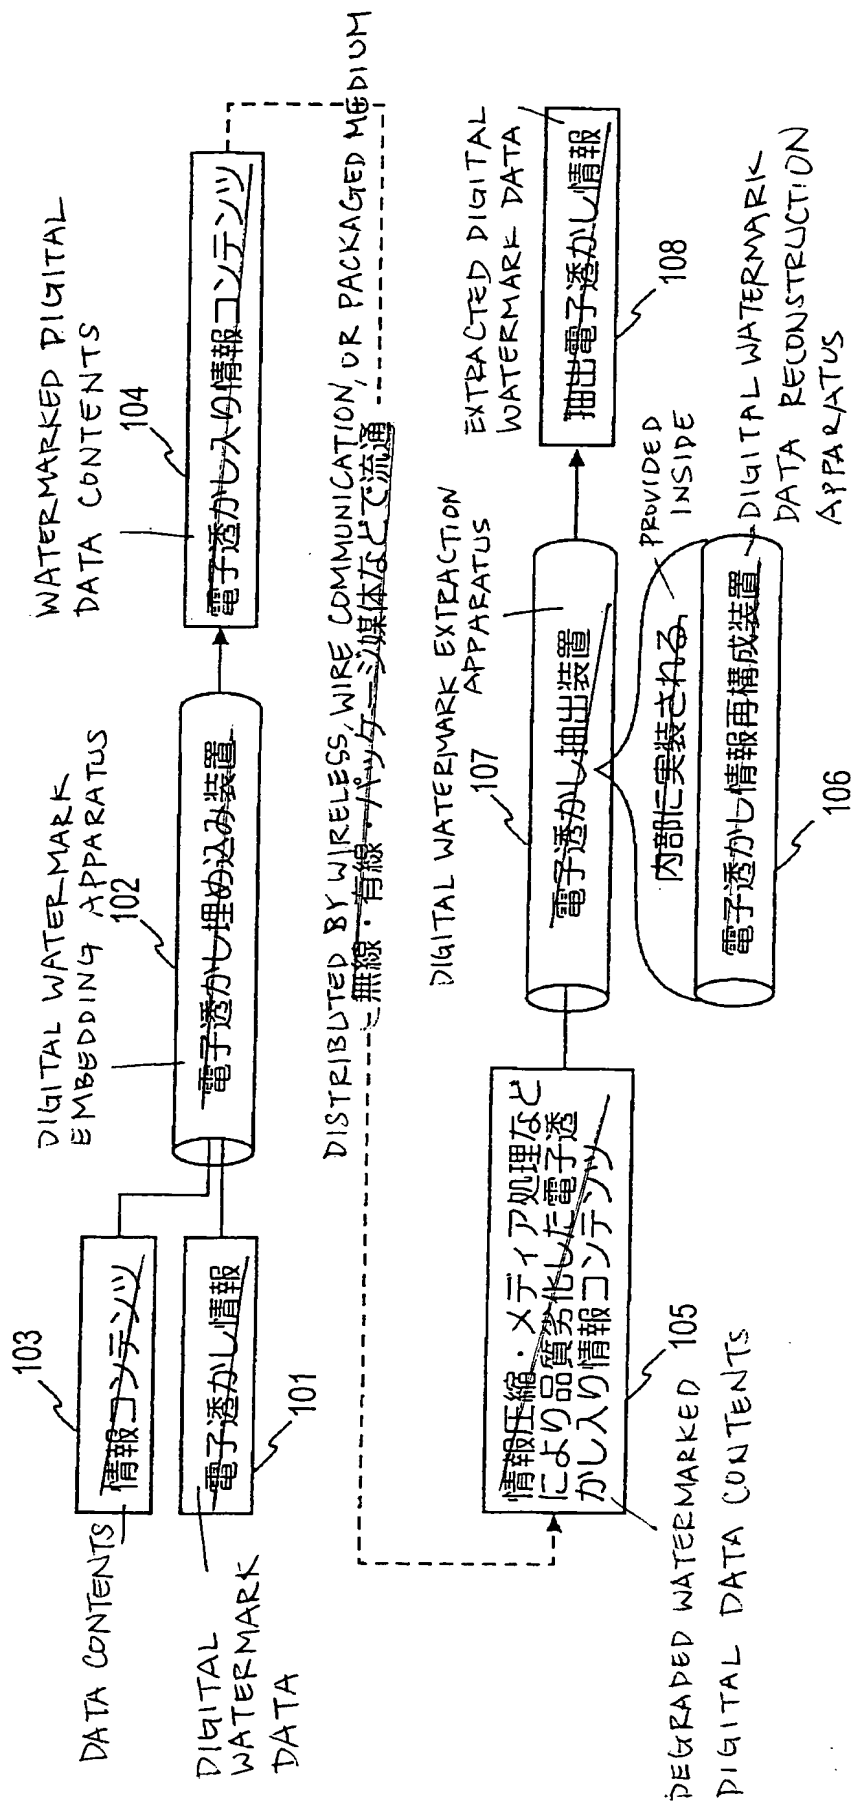 DATA CONTENTS
103
情報コンテンツ
DIGITAL
WATERMARK
DATA
電子透かし情報
101
DIGITAL WATERMARK
EMBEDDING APPARATUS
102
電子透かし埋め込み装置
WATERMARKED DIGITAL
DATA CONTENTS
104
電子透かし入り情報コンテンツ
DISTRIBUTED BY WIRELESS, WIRE COMMUNICATION, OR PACKAGED MEDIUM
無線・有線・パッケージ媒体などで流通
情報圧縮・メディア処理など
により品質劣化した電子透
かし入り情報コンテンツ
105
DEGRADED WATERMARKED
DIGITAL DATA CONTENTS
DIGITAL WATERMARK EXTRACTION
APPARATUS
107
電子透かし抽出装置
PROVIDED
INSIDE
内部に実装される
電子透かし情報再構成装置
106
DIGITAL WATERMARK
DATA RECONSTRUCTION
APPARATUS
EXTRACTED DIGITAL
WATERMARK DATA
抽出電子透かし情報
108